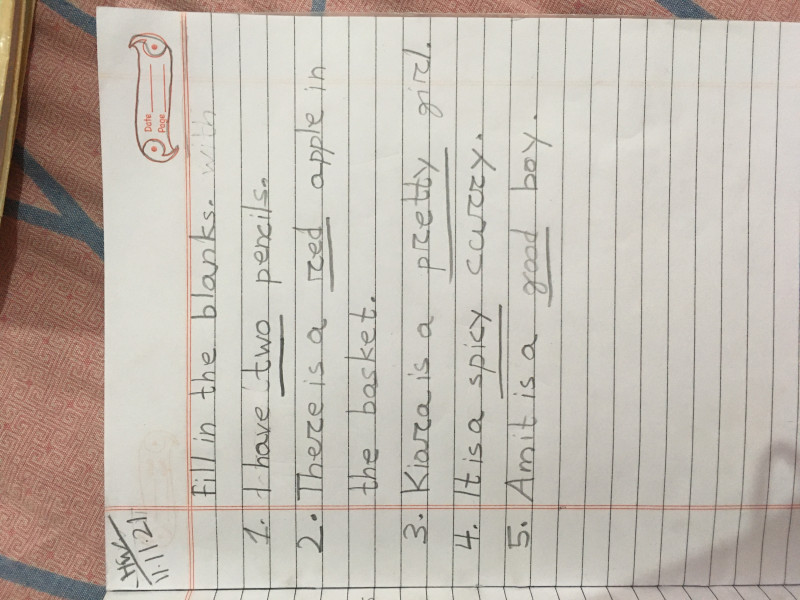 HW
11.11.21
Date
Page
Fill in the blanks. with
1. I have two pencils.
2. There is a red apple in
the basket.
3. Kiara is a pretty girl.
4. It is a spicy curry.
5. Amit is a good boy.